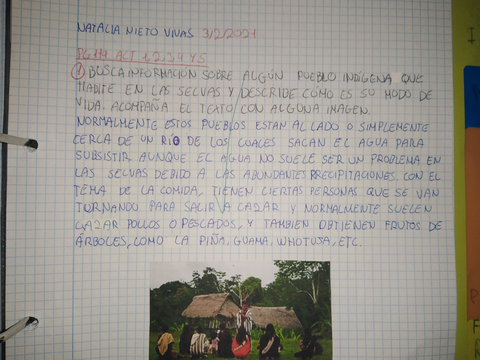 NATALIA NIETO VIVAS 3/2/2021
PG 119 ACT 1,2,3,4 Y 5
1) BUSCA INFORMACIÓN SOBRE ALGÚN PUEBLO INDÍGENA QUE
HABITE EN LAS SELVAS Y DESCRIBE CÓMO ES SU MODO DE
VIDA. ACOMPAÑA EL TEXTO CON ALGUNA IMAGEN.
NORMALMENTE ESTOS PUEBLOS ESTAN AL LADO O SIMPLEMENTE
CERCA DE UN RÍO DE LOS CUALES SACAN EL AGUA PARA
SUBSISTIR. AUNQUE EL AGUA NO SUELE SER UN PROBLEMA EN
LAS SELVAS DEBIDO A LAS ABUNDANTES PRECIPITACIONES. CON EL
TEMA DE LA COMIDA, TIENEN CIERTAS PERSONAS QUE SE VAN
TURNANDO PARA SALIR A CAZAR Y NORMALMENTE SUELEN
CAZAR POLLOS O PESCADOS, Y TAMBIEN OBTIENEN FRUTOS DE
ÁRBOLES, COMO LA PIÑA, GUAMA, WHOTUSA, ETC.